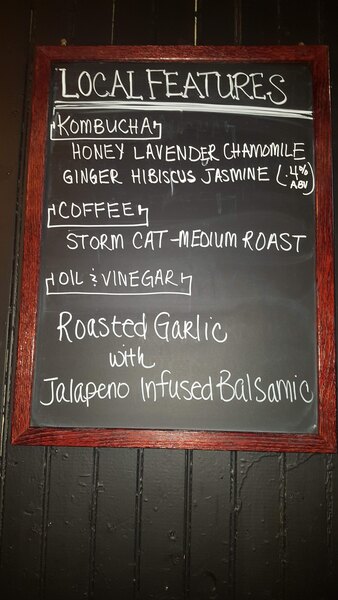 LOCAL FEATURES
KOMBUCHA
HONEY LAVENDER CHAMOMILE
GINGER HIBISCUS JASMINE (.4% ABV)
COFFEE
STORM CAT - MEDIUM ROAST
OIL & VINEGAR
Roasted Garlic
with
Jalapeno Infused Balsamic